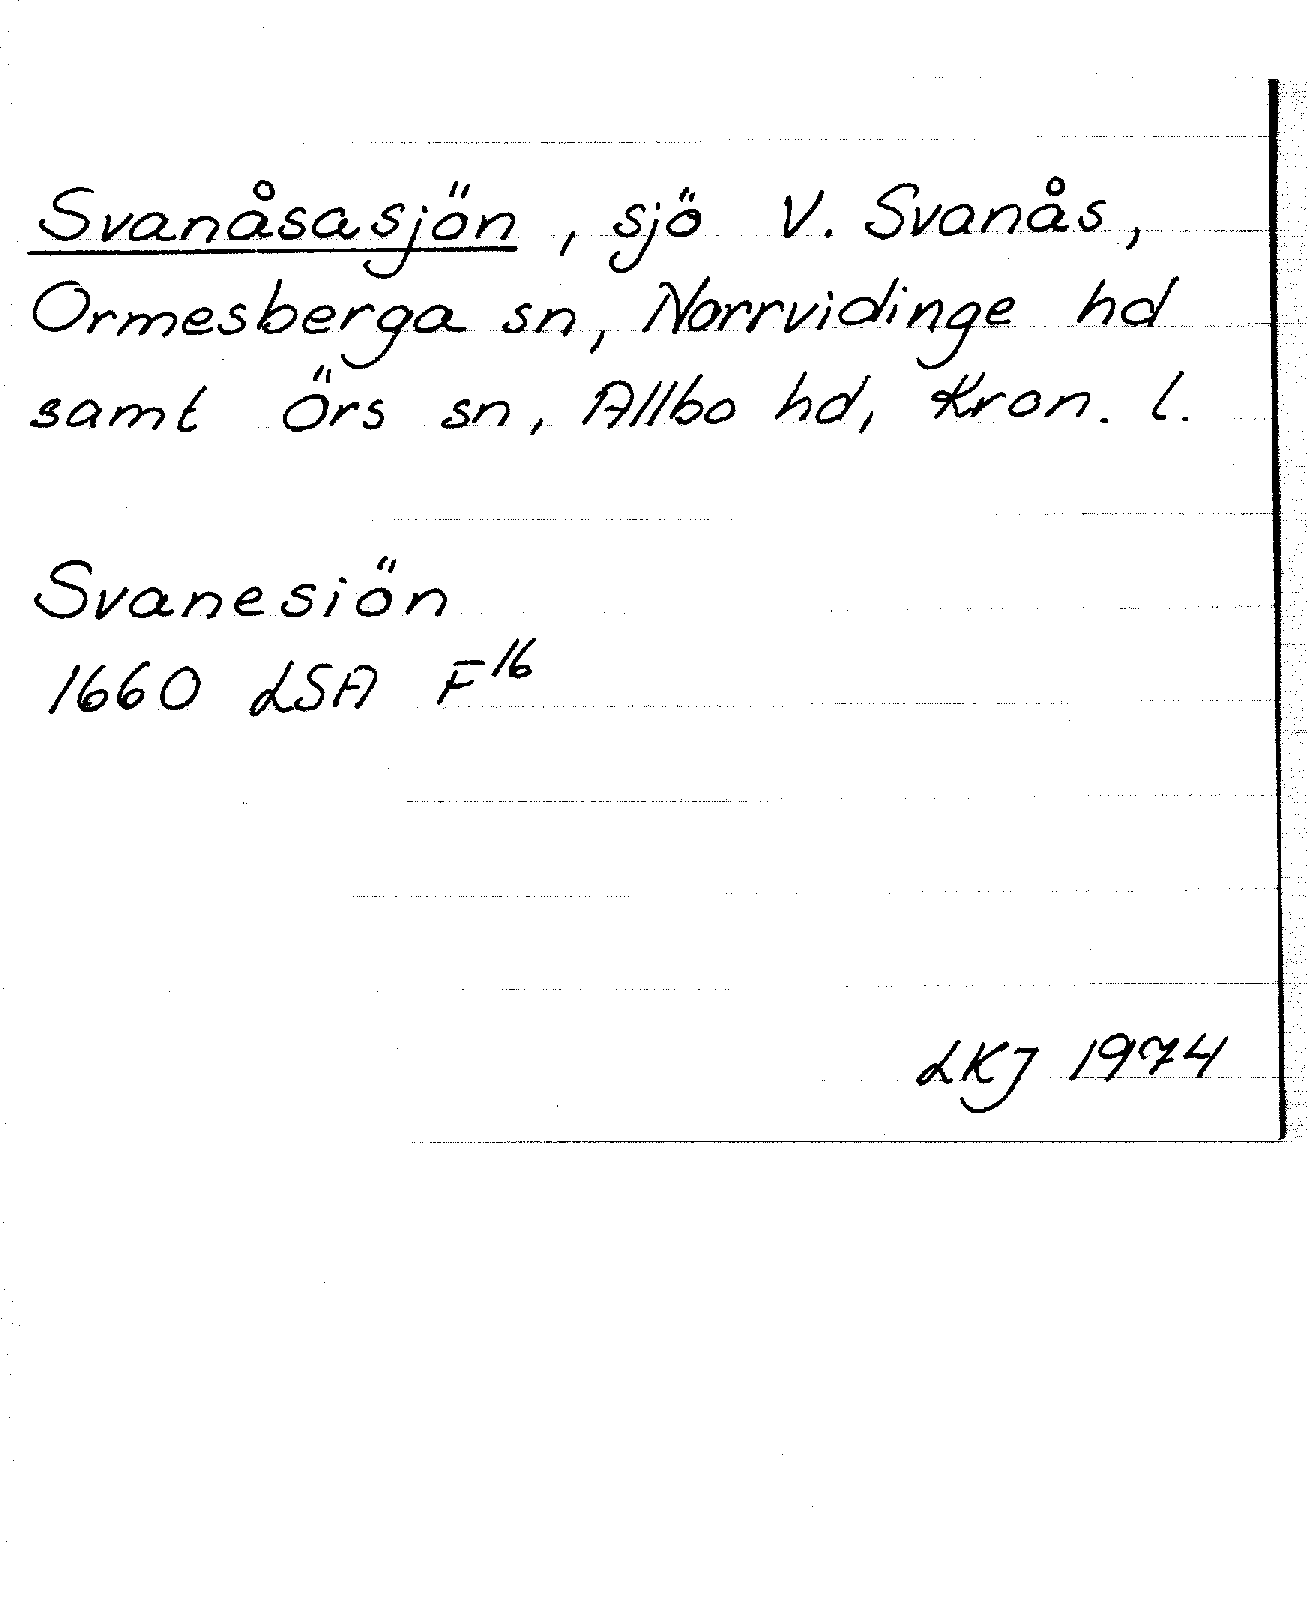 Svanåsasjön, sjö V. Svanås,
Ormesberga sn, Norrvidinge hd
samt Örs sn, Allbo hd, Kron. l.
Svanesiön
1660 LSA F16
LKJ 1974